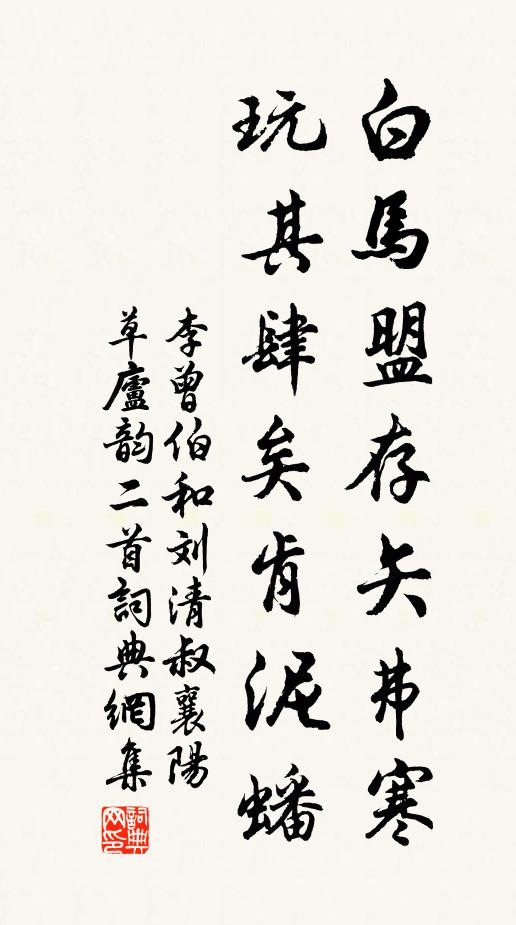 白馬盟存矢弗寒
玩其肆矣肯泥蟠
李曾伯和刘清叔襄陽
草廬韵二首詞典網集
詞典网印